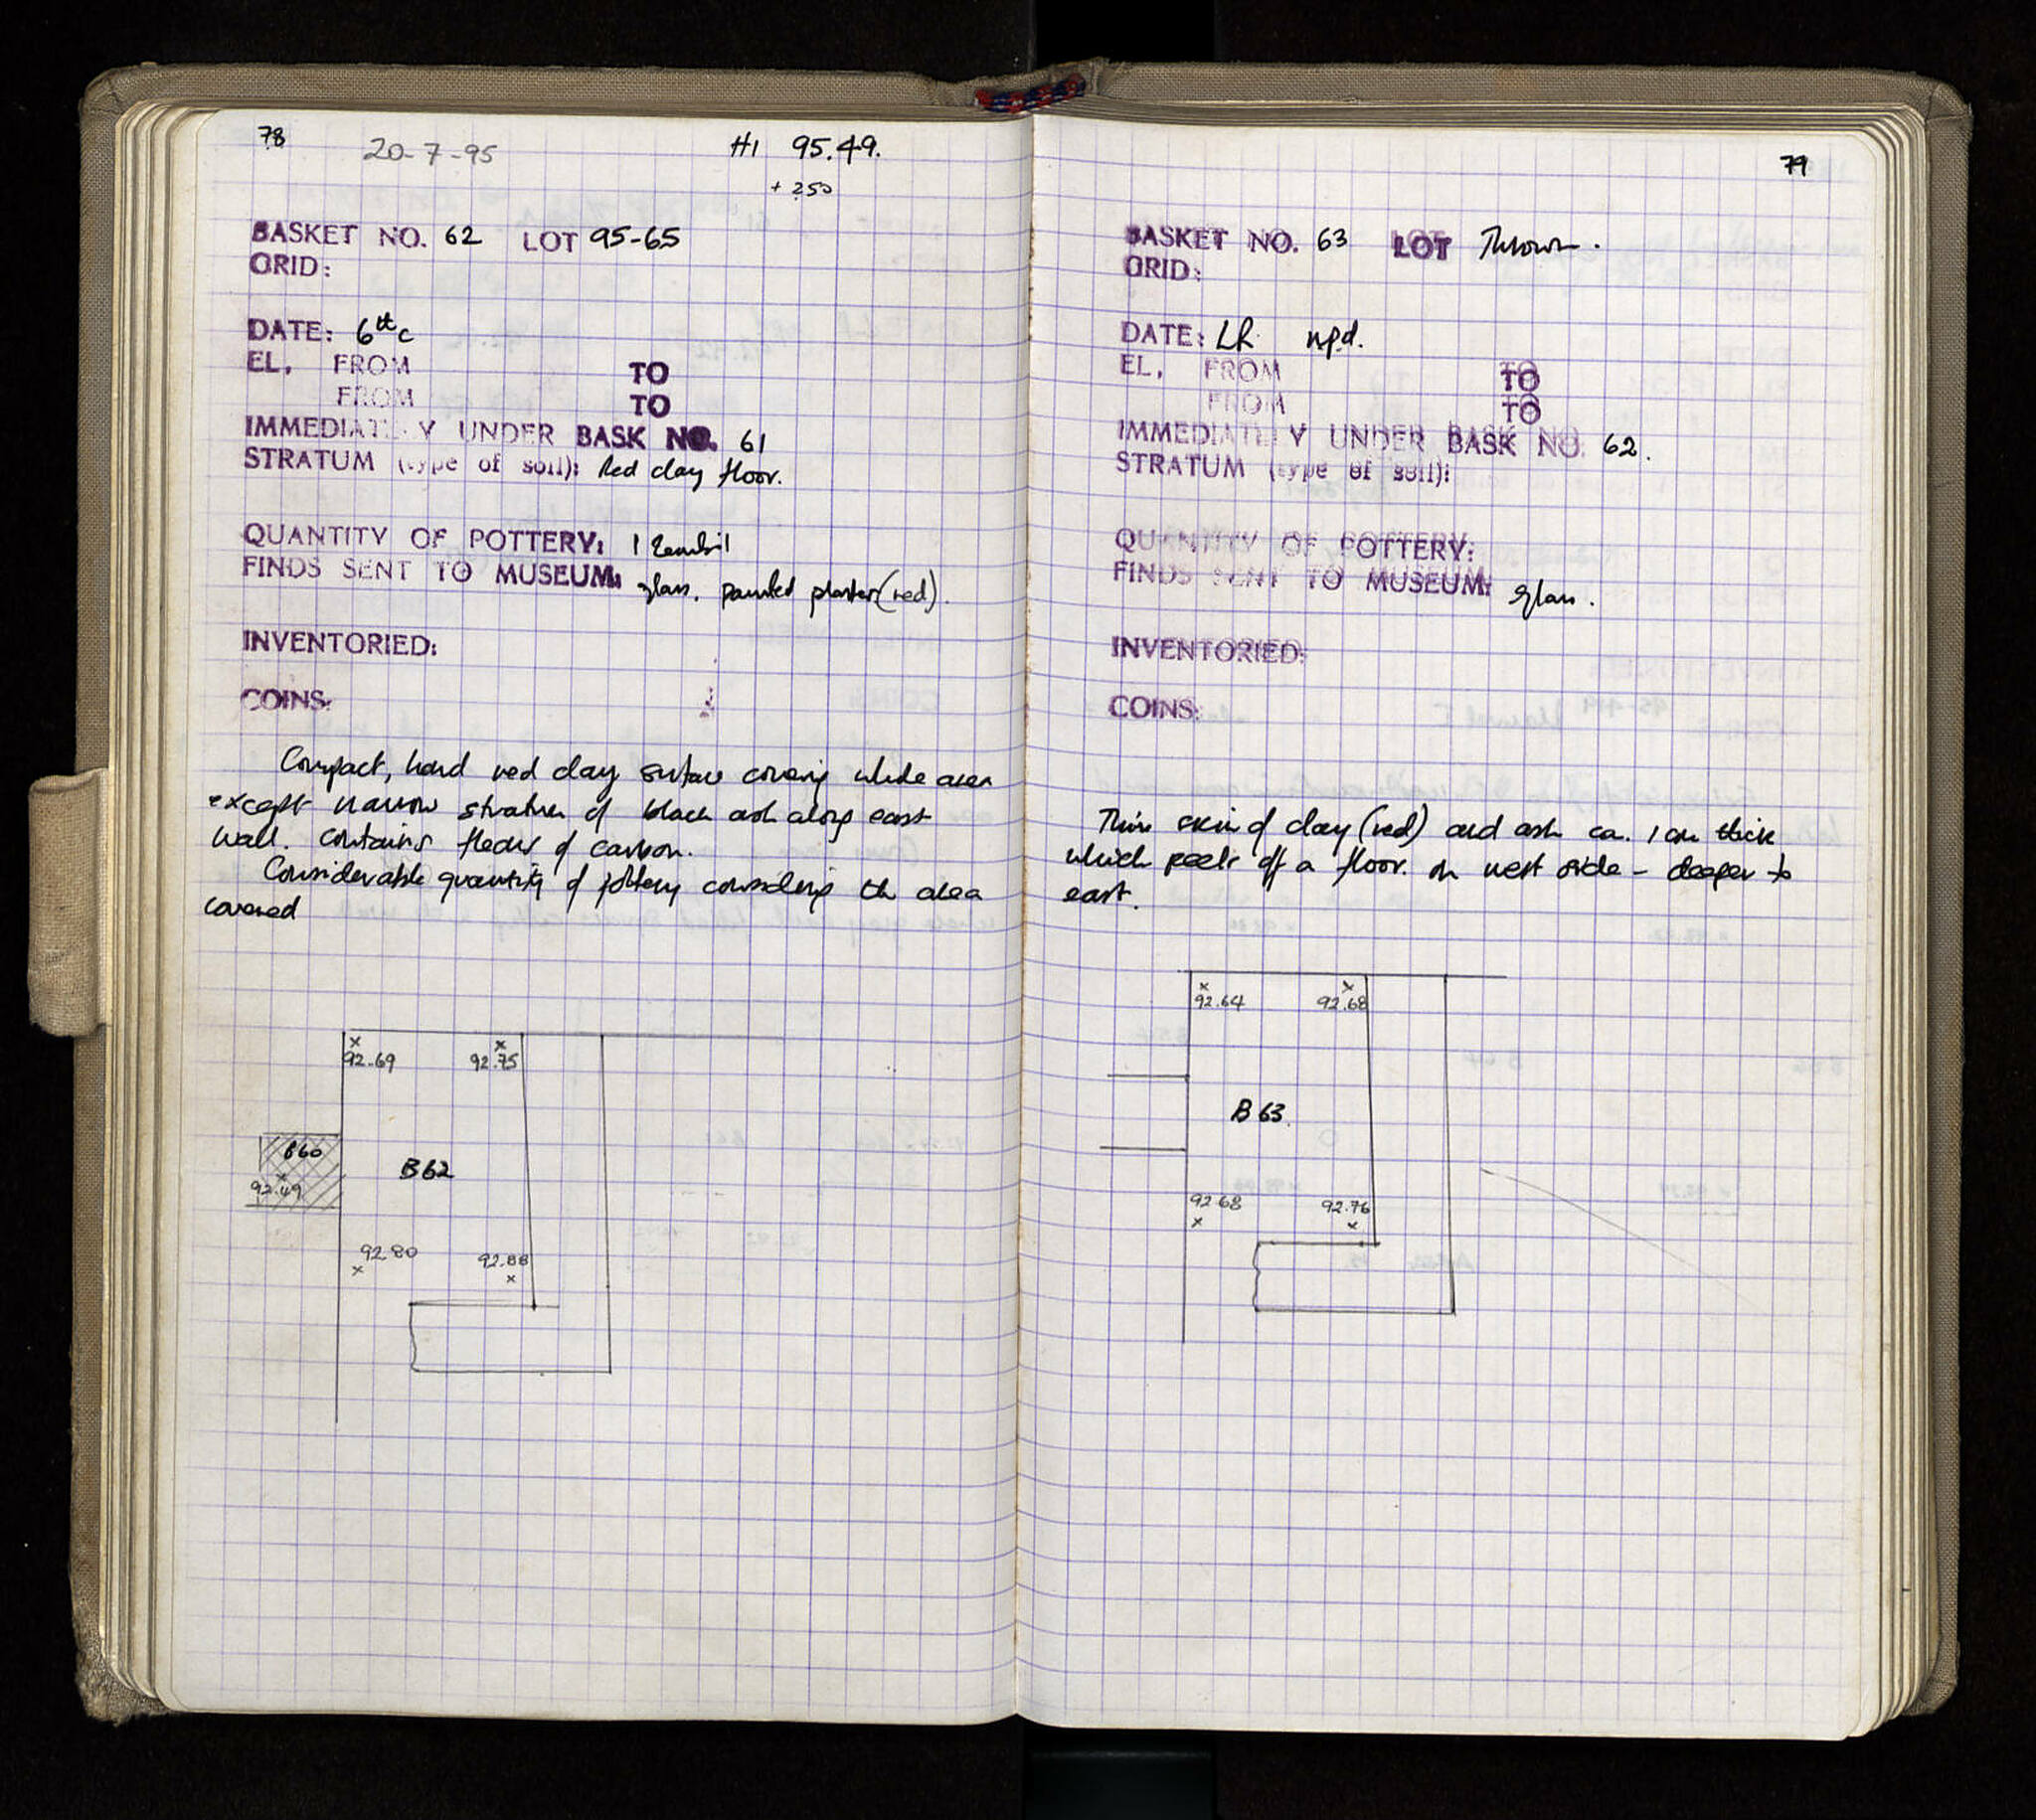 78
20-7-95
HI 95.49.
+ 250
BASKET NO. 62 LOT 95-65
GRID:
DATE: 6th c
EL. FROM TO
FROM TO
IMMEDIATELY UNDER BASK NO. 61
STRATUM (type of soil): Red clay floor.
QUANTITY OF POTTERY: 1 zembil
FINDS SENT TO MUSEUM: glass, painted plaster (red).
INVENTORIED:
COINS:
Compact, hard red clay surface covering whole area
except narrow stratum of black ash along east
wall. Contains flecks of carbon.
Considerable quantity of pottery considering the area
covered
92.69 92.75
B60
92.49
B62
92.80 92.88
79
BASKET NO. 63 LOT Thrown.
GRID:
DATE: LR npd.
EL. FROM TO
FROM TO
IMMEDIATELY UNDER BASK NO. 62.
STRATUM (type of soil):
QUANTITY OF POTTERY:
FINDS SENT TO MUSEUM: glass.
INVENTORIED:
COINS:
Thin skin of clay (red) and ash ca. 1 cm thick
which peels off a floor. on west side - deeper to
east.
92.64 92.68
B 63.
92.68 92.76